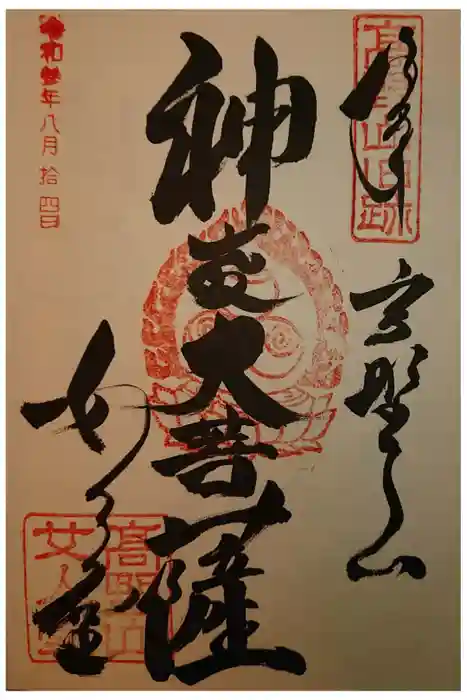 奉拝
高野山旧跡
高野山
神変大菩薩
令和参年八月拾四日
女人堂
高野山
女人堂